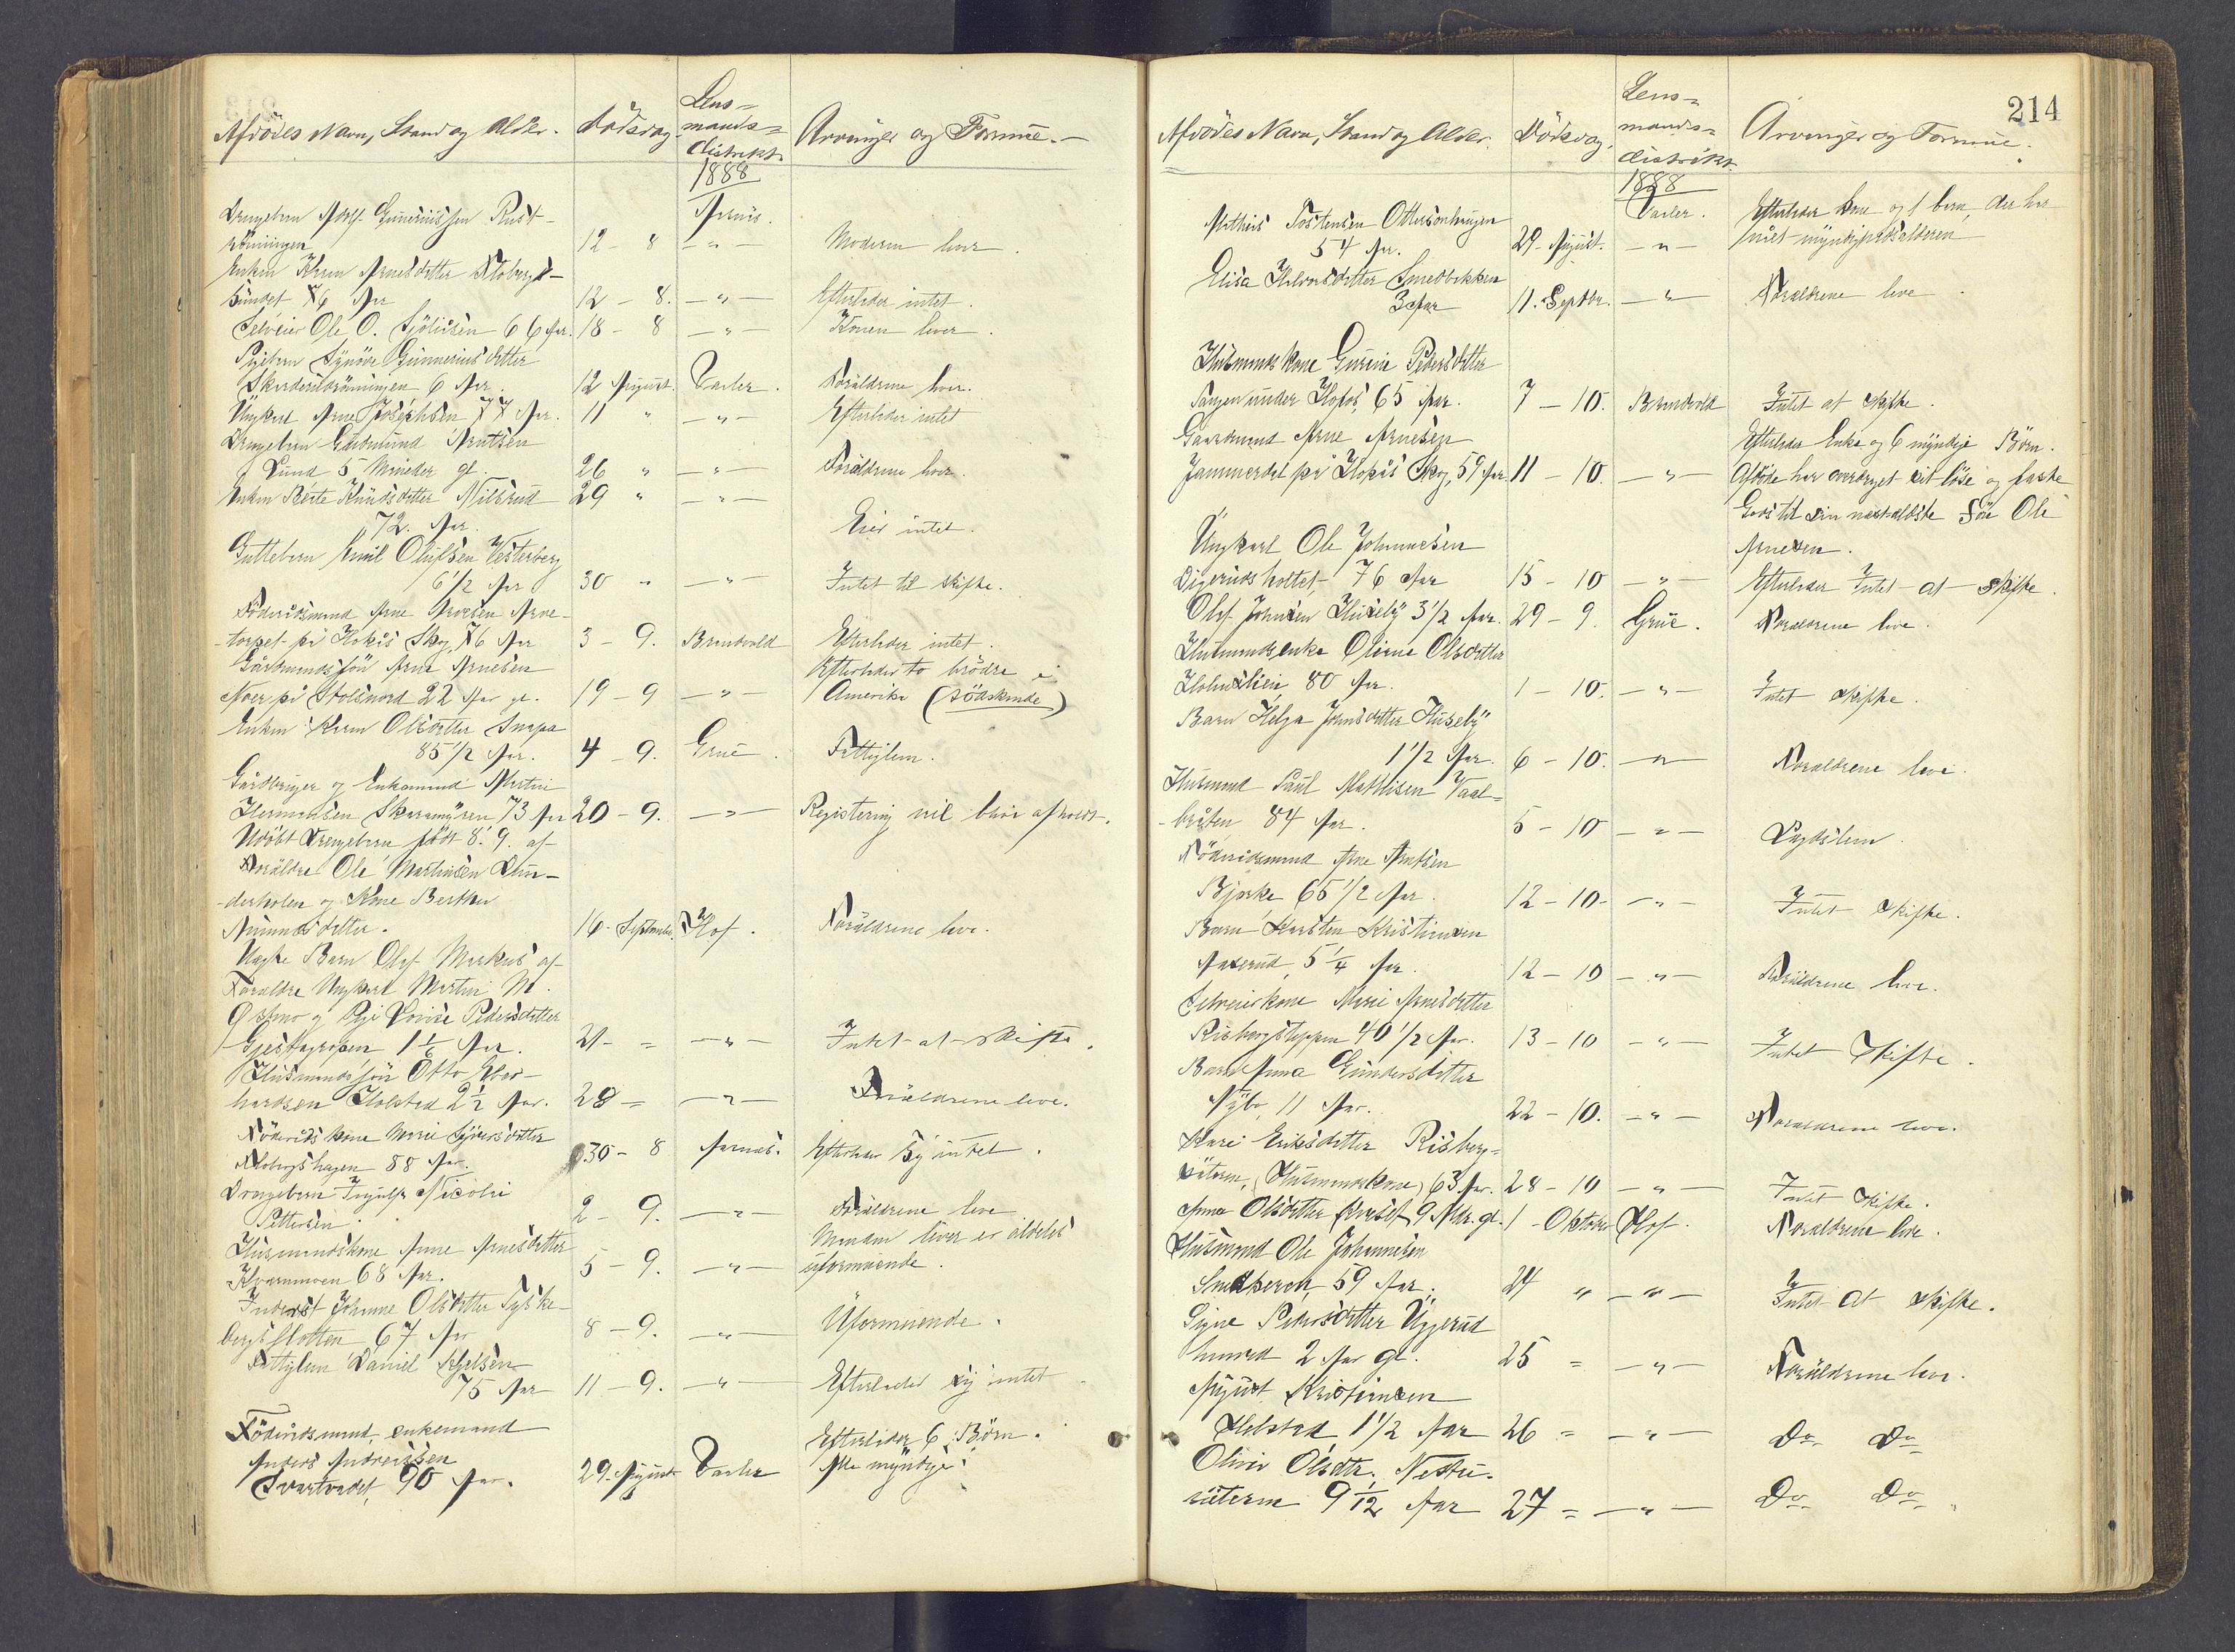 Afdødes Navn, Stand og Alder. Dødsdag. Lens-
mands-
distrikt. Arvinger og Formue.
1888
Drengebarn Adolf Gunerius sen Rust-
Aasnæs.
rønningen 12 - 8 - " - Moderen lever.
Enken Karen Arnesdatter
76 Aar 12 - 8. - " - Efterlader intet.
Selveier Ole O. Sjölisen 66 Aar. 18 - 8 - " - Konen lever.
Pigebarn Synöve Gunneriusdatter
6 Aar. 12 August. Vaaler. Forældrene lever.
Ungkarl Arne Josephsen 77 Aar. 11 " - " - Efterlader intet
Drengebarn Gudmund Arntsen
Lund 5 Maaneder gl. 26 " - " - Forældrene lever.
Enken Berte Knudsdatter Nilsrud 29 " - " -
72. Aar. Eier intet.
Guttebarn Emil Olufsen Vesterberg
6 1/2 Aar 30 " - " - Intet til skifte.
Föderaadsmand Arne Arnesen Arne-
-torpet på Hokås Skog, 76 Aar 3 - 9. Brandvold Efterlader intet.
Gårdmandssön Arne Arnesen
Efterlader to brödre i
Moer på 22 Aar gl. 19 - 9 - " - Amerika (södskende)
Enken Karen Olsdatter Snapa
85 1/2 Aar. 4 - 9. Grue. Fattiglem.
Gårdbruger og Enkemand Martin
Hermansen Skaramyren 73 Aar 20 - 9. - " - Registering vil blive afholdt.
Udöbt Drengebarn födt 8. 9. af
Forældre Ole Martinsen Dun-
derholen og Kone Berthe
Amundsdatter. 16. September. Hof. Forældrene leve.
Uægte Barn Olaf Markus af
Forældre Ungkarl Martin M.
Østmo og Pige Lovise Pedersdatter
Gjestagropen 1 1/6 Aar. 21 - = - " - Intet at skifte.
Husmandssön Otto Eber-
hardsen Holstad 2 1/2 Aar. 28 = - " - Forældrene leve.
Föderåds kone Marie Syversdatter
88 Aar. 30 - 8 Aasnæs. Efterlader sig intet.
Drengebarn Ingulf Nicolai
Pettersen. 2 - 9. - " - Forældrene leve
Husmandskone Anne Arnesdatter Manden lever er aldeles
Kvernmoen 68 Aar. 5 - 9. - " - uformuende.
Inderst Johanne Olsdatter Tyske-
bergsflotten 67 Aar 8 - 9. - " - Uformuende.
Fattiglem Daniel Kjelsen
75 Aar 11 - 9. - " - Efterlader sig intet
Föderaadsmand, enkemand
Anders Andreassen Efterlader 6 Börn.
Svartvadet, 90 Aar. 29. August Vaaler Alle myndige.
214
Afdødes Navn, Stand og Alder. Dødsdag. Lens-
mands-
distrikt. Arvinger og Formue.
1888
Mathis Tostensen Ottersönhaugen Vaaler. Efterlader Kone og 1 barn, der har
54 Aar. 29. August. - " - nået myndighedsalderen
Elisa Halvorsdatter Smedbekken
3 Aar 11. Septbr. - " - Forældrene leve.
Husmands kone Gurine Pedersdatter
Tangen under Hofos, 65 Aar. 7 - 10. Brandvold Intet at skifte.
Gaardmand Arne Arnesen Efterlader Enke og 6 myndige Börn.
Jammerdal på Hokås Skog, 59 Aar 11 - 10. - " - Afdöde har overdraget sit löse og faste
Gods til sin næstældste Sön Ole
Ungkarl Ole Johannesen Arnesen.
Digerudsholtet, 76 Aar 15 - 10 - " - Efterlader Intet at skifte.
Olaf Johnsen Huseby 3 1/2 Aar. 29 - 9. Grue. Forældrene leve.
Husmandsenke Oliane Olsdatter
Holmslien, 80 Aar. 1 - 10. - " - Intet skifte.
Barn Helga Johnsdatter Huseby
1 1/2 Aar. 6 - 10. - " - Forældrene leve.
Husmand Paul Mathisen Vaal-
-bråten 84 Aar. 5 - 10 - " - Lægdslem.
Föderaadsmand Arne Arntsen
Bjerke 65 1/2 Aar. 12 - 10 - - " - Intet skifte.
Barn Karsten Kristiansen
Aaserud, 5 1/4 Aar. 12 - 10 - " - Forældrene leve.
Selveierkone Marie Arnesdatter
Risbergstoppen 40 1/2 Aar. 13 - 10 - " - Intet Skifte.
Barn Anna Gundersdatter
Nybo, 11 Aar. 22 - 10. - " - Forældrene leve.
Kari Eriksdatter Risberg-
sæteren, (Husmandskone) 63 Aar. 28 - 10 - " - Intet skifte.
Anna Olsdatter 9 Mdr. gl. 1 - Oktober Hof. Forældrene leve.
Husmand Ole Johannesen
59 Aar. 24 " - " - Intet at skifte.
Signe Pedersdatter Uggerud
2 Aar gl. 25 = - " - Forældrene leve.
August Kristiansen
Holstad 1 1/2 Aar 26 = - " - Do Do
Olivia Olsdtr.
sæteren 9 1/12 Aar 27 = - " - Do Do